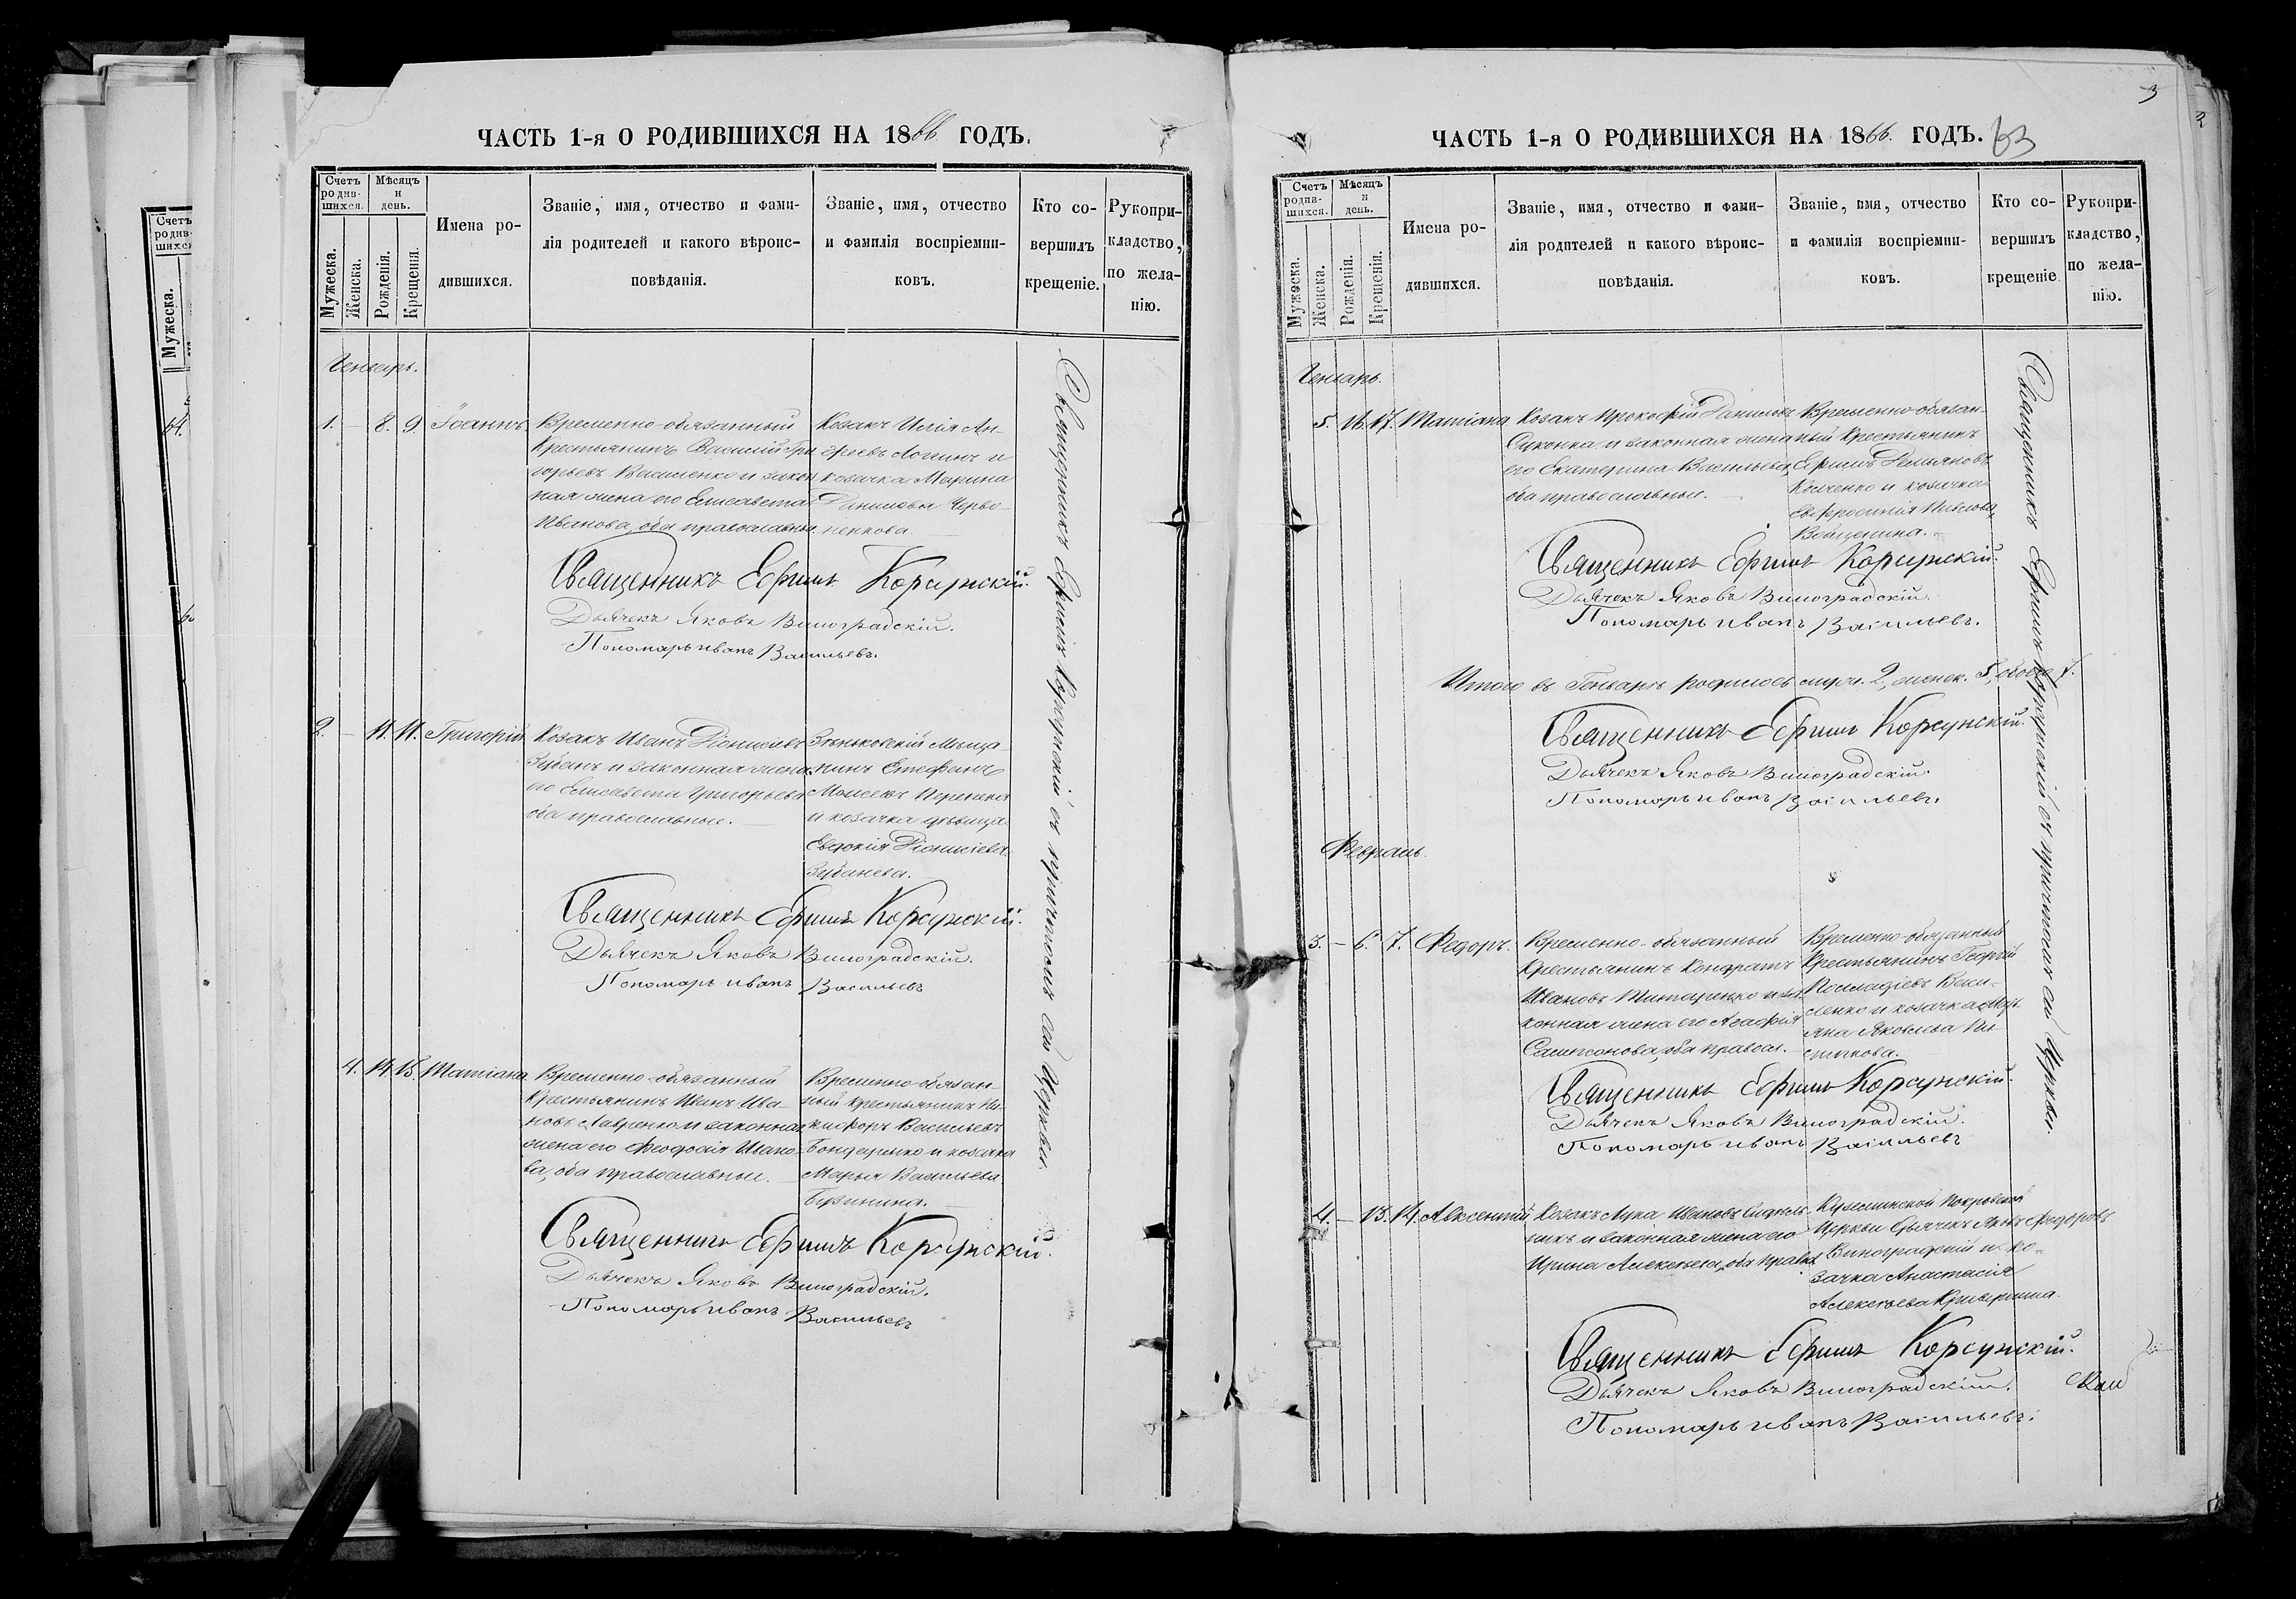 ЧАСТЬ 1-я О РОДИВШИХСЯ НА 1866 ГОДЪ.
Счетъ родив-шихся.
Мѣсяцъ и день.
Мужеска.
Женска.
Рожденія.
Крещенія.
Имена ро-
дившихся.
Званіе, имя, отчество и фами-
лія родителей и какого вѣроис-
повѣданія.
Званіе, имя, отчество
и фамилія воспріемни-
ковъ.
Кто со-
вершилъ
крещеніе.
Рукопри-
кладство,
по жела-
нію.
Генварь.
1. – 8. 9. Іоаннъ
Временно-обязанный
Крестьянинъ Василій Гри
горьевъ Василенко и закон
ная жена его Елисавета
Иванова, оба православны.
Козакъ Илія Ан-
дреевъ Логвинъ и
козачка Марина
Данилова Черво-
ненкова.
Священникъ Ефимъ Корсунскій.
Дьячекъ Яковъ Виноградскій.
Пономарь иванъ Васильевъ.
2. – 11. 11. Григорій
Козакъ Иванъ Діонисіевъ
Зубанъ и законная жена
его Елисавета Григорьева
оба православные.
Зѣньковскій Мѣща-
нинъ Стефанъ
Моисеевъ
и козачка дѣвица
Евдокія Діонисіева
Зубанева.
Священникъ Ефимъ Корсунскій.
Дьячекъ Яковъ Виноградскій.
Пономарь иванъ Васильевъ
4. 14. 15. Татіана
Временно-обязанный
Крестьянинъ Иванъ Ива-
новъ Лавренко и законная
жена его Феодосія Ивано-
ва, оба православные.
Временно-обязан-
ный крестьянинъ Ни-
кифоръ Васильевъ
Бондаренко и козачка
Марья Васильева
Священникъ Ефимъ Корсунскій.
Дьячекъ Яковъ Виноградскій.
Пономарь иванъ Васильевъ
Священникъ Ефимъ Корсунскій съ причтомъ сей Церкви.
3
63
ЧАСТЬ 1-я О РОДИВШИХСЯ НА 1866. ГОДЪ.
Счетъ родив-шихся.
Мѣсяцъ и день.
Мужеска.
Женска.
Рожденія.
Крещенія.
Имена ро-
дившихся.
Званіе, имя, отчество и фами-
лія родителей и какого вѣроис-
повѣданія.
Званіе, имя, отчество
и фамилія воспріемни-
ковъ.
Кто со-
вершилъ
крещеніе
Рукопри-
кладство,
по жела-
нію.
Генварь.
5. 16. 17. Татіана
Козакъ Прокофій Даниловъ
и законная жена
его Екатерина Васильева,
оба православные.
Временно-обязан-
ный Крестьянинъ
Ефимъ Демьяновъ
и козачка
Евфросинія Павлова
Священникъ Ефимъ Корсунскій.
Дьячекъ Яковъ Виноградскій.
Пономарь иванъ Васильевъ.
Итого въ Генварѣ родилось муж. 2, женск. 5, обоего 7.
Священникъ Ефимъ Корсунскій.
Дьячекъ Яковъ Виноградскій.
Пономарь иванъ Васильевъ.
Февраль.
3. – 6. 7. Федоръ.
Временно-обязанный
Крестьянинъ Кондратъ
Ивановъ и за-
конная жена его Агафія
Самсонова, оба правосл.
Временно-обязанный
Крестьянинъ Георгій
Васи-
ленко и козачка
Яковлева
Священникъ Ефимъ Корсунскій.
Дьячекъ Яковъ Виноградскій.
Пономарь иванъ Васильевъ
4. – 13. 14. Авксентій
Козакъ Лука Ивановъ
и законная жена его
Ирина Алексѣева, оба правосл.
Покровской
Церкви Дьячекъ Яковъ Федоровъ
Виноградскій и ко-
зачка Анастасія
Алексѣева
Священникъ Ефимъ Корсунскій.
Дьячекъ Яковъ Виноградскій.
Пономарь иванъ Васильевъ.
Священникъ Ефимъ Корсунскій съ причтомъ сей Церкви.